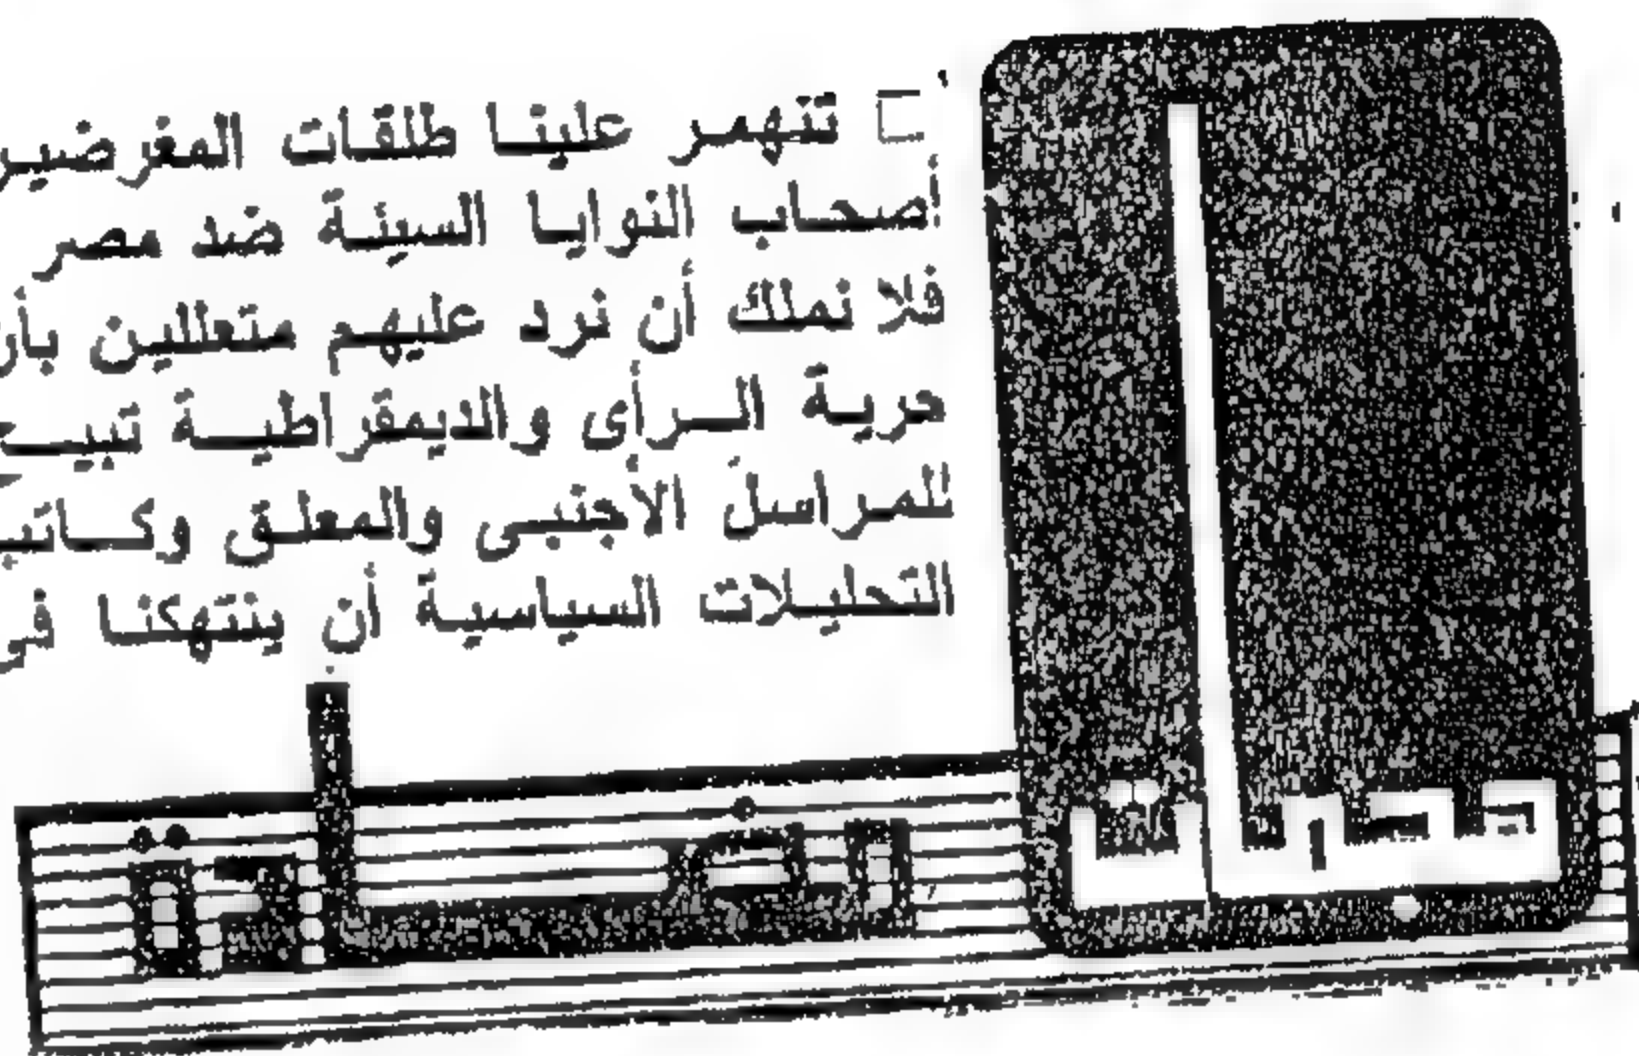 تنهمر علينا طلقات
أصحاب النوايا السيئة ضد مصر
فلا نملك أن نرد عليهم متعللين بأن
حرية الرأى والديمقراطية تبيح
للمراسل الأجنبى والمعلق وكاتب
التحليلات السياسية أن ينتهكنا فى
هجمات مضادة